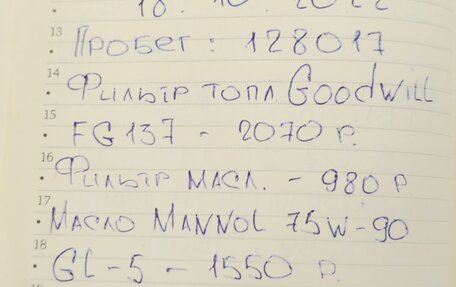 10. 10. 2022
13 Пробег: 128017
14 Фильтр топл Goodwill
15 FG 137 - 2070 р.
16 Фильтр масл. - 980 р
17 Масло MANNOL 75W-90
18 GL-5 - 1550 р.